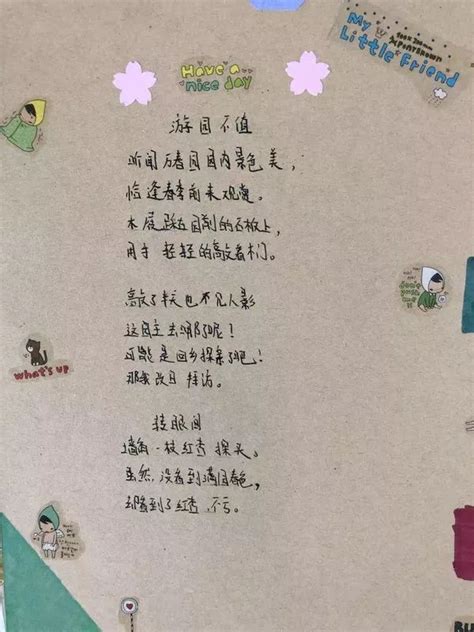 My
Little Friend
Have a
nice day
游园不值
听闻万春园园内景色美，
恰逢春季前来观赏。
木屐踩在园前的石板上，
用手轻轻的敲着木门。
敲了半天也不见人影
这园主去哪了呢！
可能是回乡探亲了吧！
那我改日拜访。
转眼间
墙角一枝红杏探头，
虽然没看到满园春色，
却看到了红杏不亏。
what's up